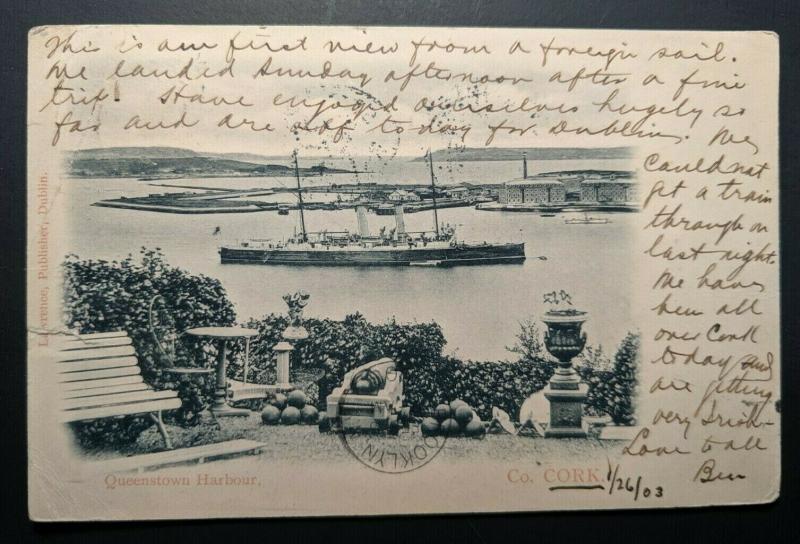 This is our first view from a foreign soil.
We landed Sunday afternoon after a fine
trip. Have enjoyed ourselves hugely so
far and are off today for Dublin. We
could not
get a train
through on
last night.
We have
been all
over Cork
today and
are getting
very Irish.
Love to all
Ben
Lawrence, Publisher, Dublin.
Queenstown Harbour,
Co. CORK.
1/26/03
OOKLYN